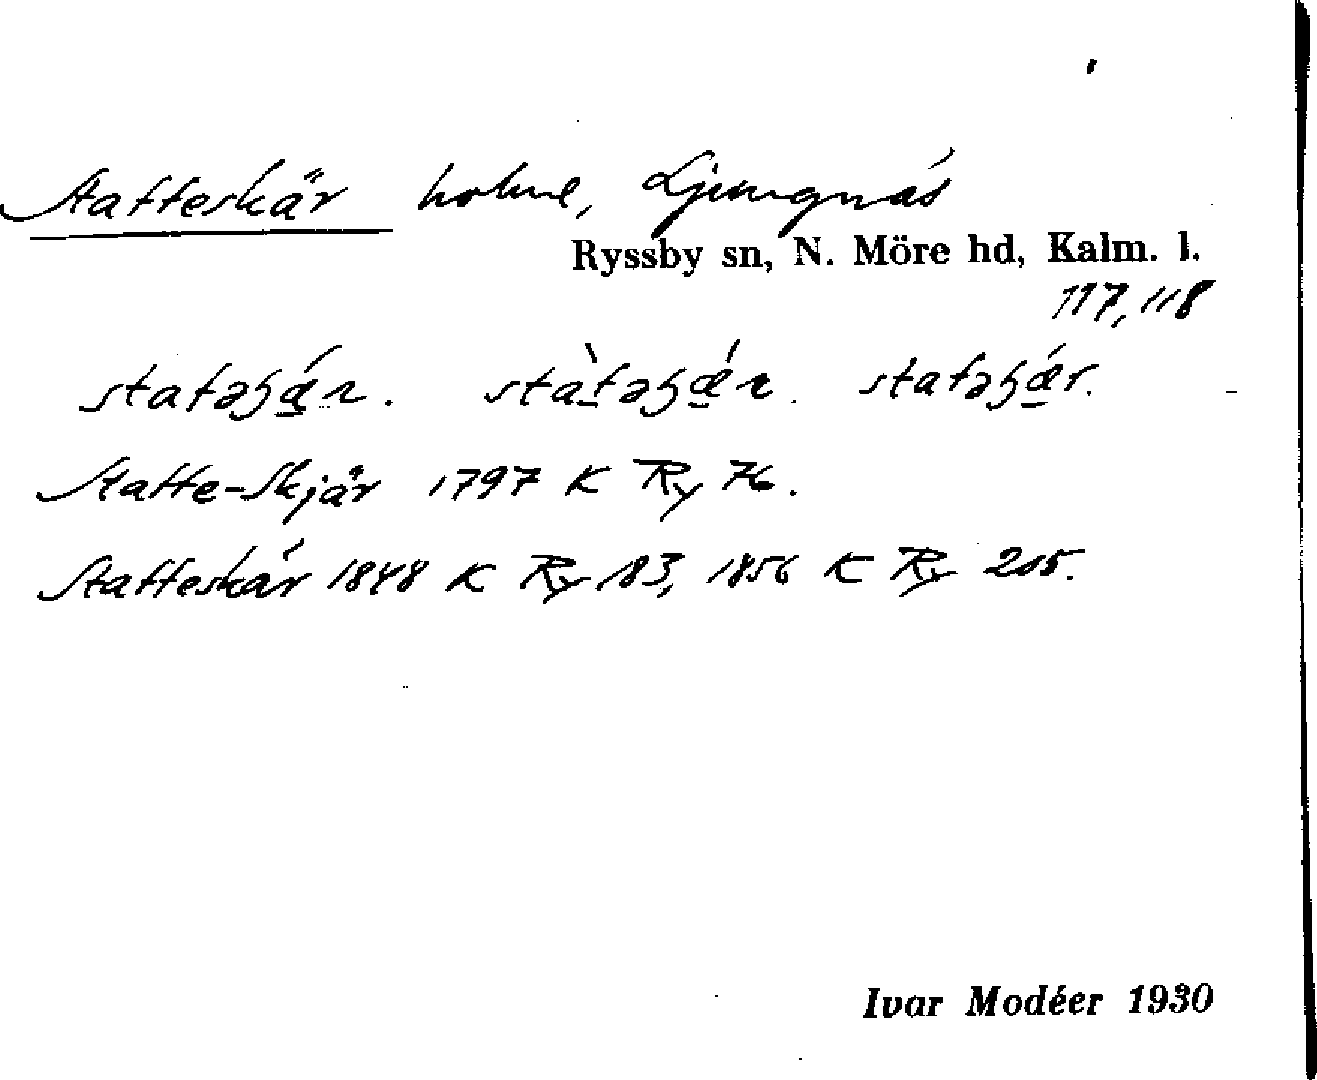 Statteskär holme, Ljungnäs
Ryssby sn, N. Möre hd, Kalm. l.
117, 118
Statte-Skjär 1797 K Ry 76.
Statteskär 1848 K Ry 183, 1856 K Ry 205.
Ivar Modéer 1930